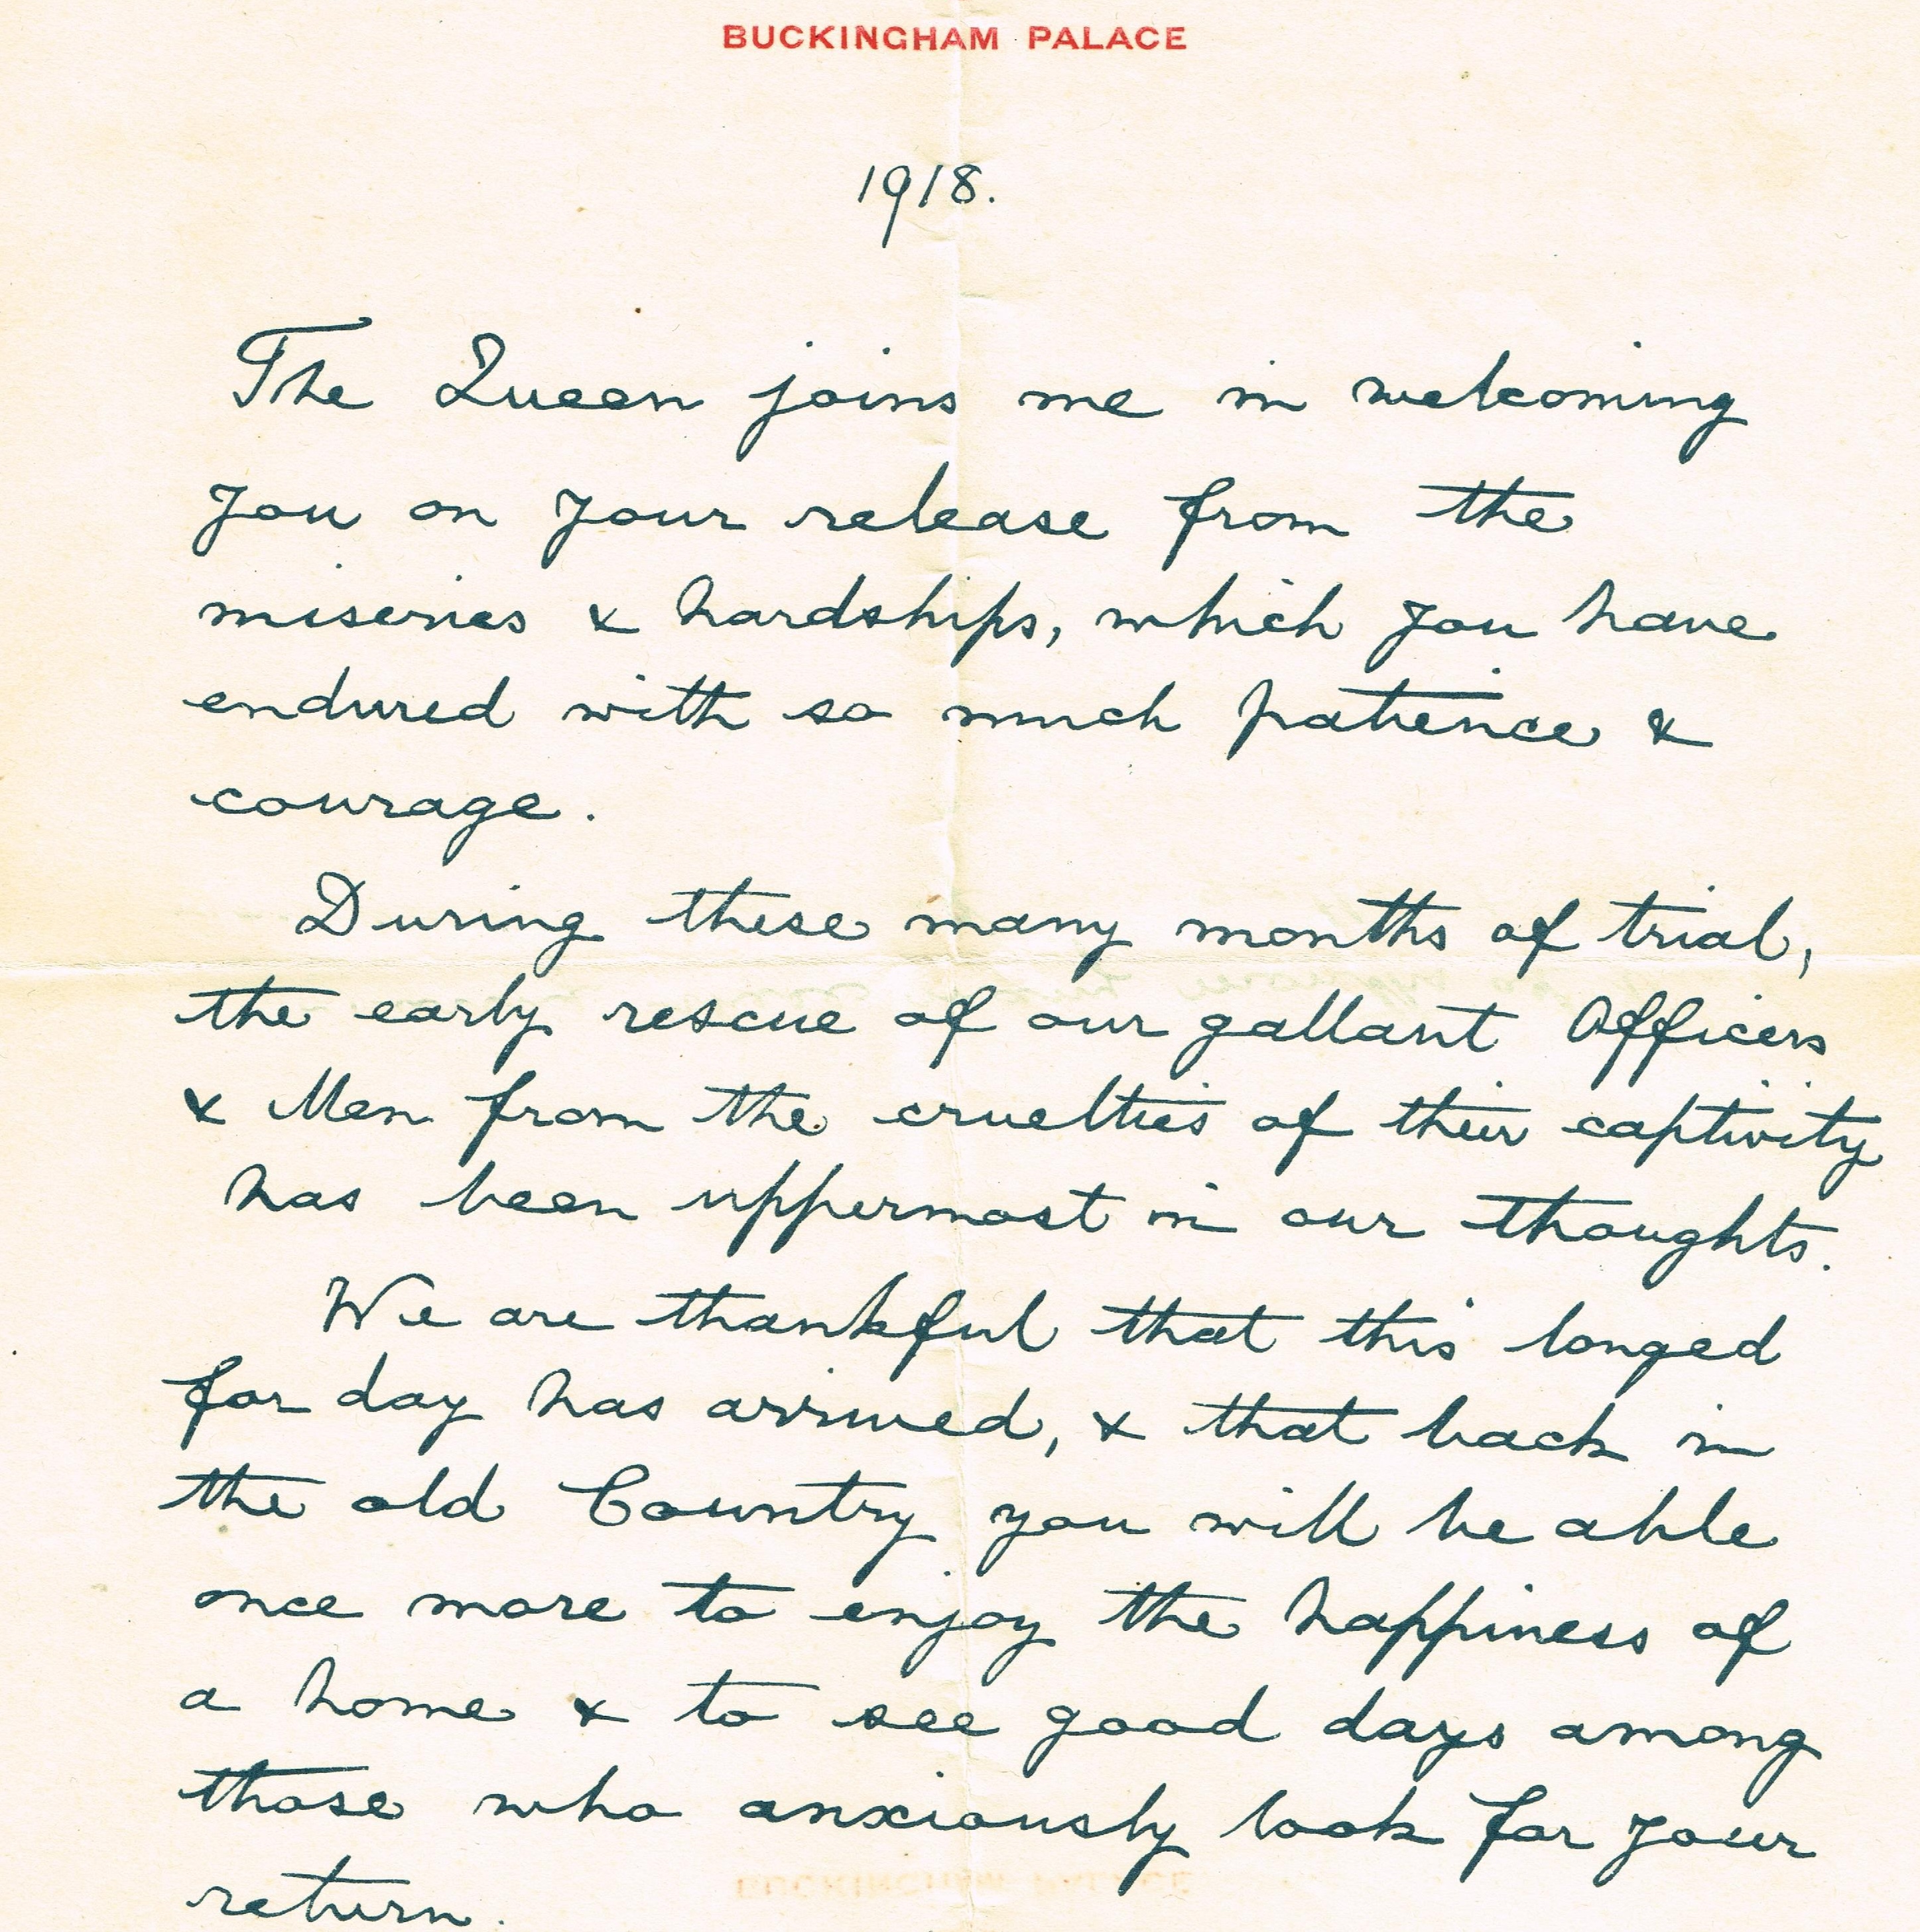 BUCKINGHAM PALACE
1918.
The Queen joins me in welcoming
you on your release from the
miseries & hardships, which you have
endured with so much patience &
courage.
During these many months of trial,
the early rescue of our gallant Officers
& Men from the cruelties of their captivity
has been uppermost in our thoughts.
We are thankful that this longed
for day has arrived, & that back in
the old Country you will be able
once more to enjoy the happiness of
a home & to see good days among
those who anxiously look for your
return.
BUCKINGHAM PALACE